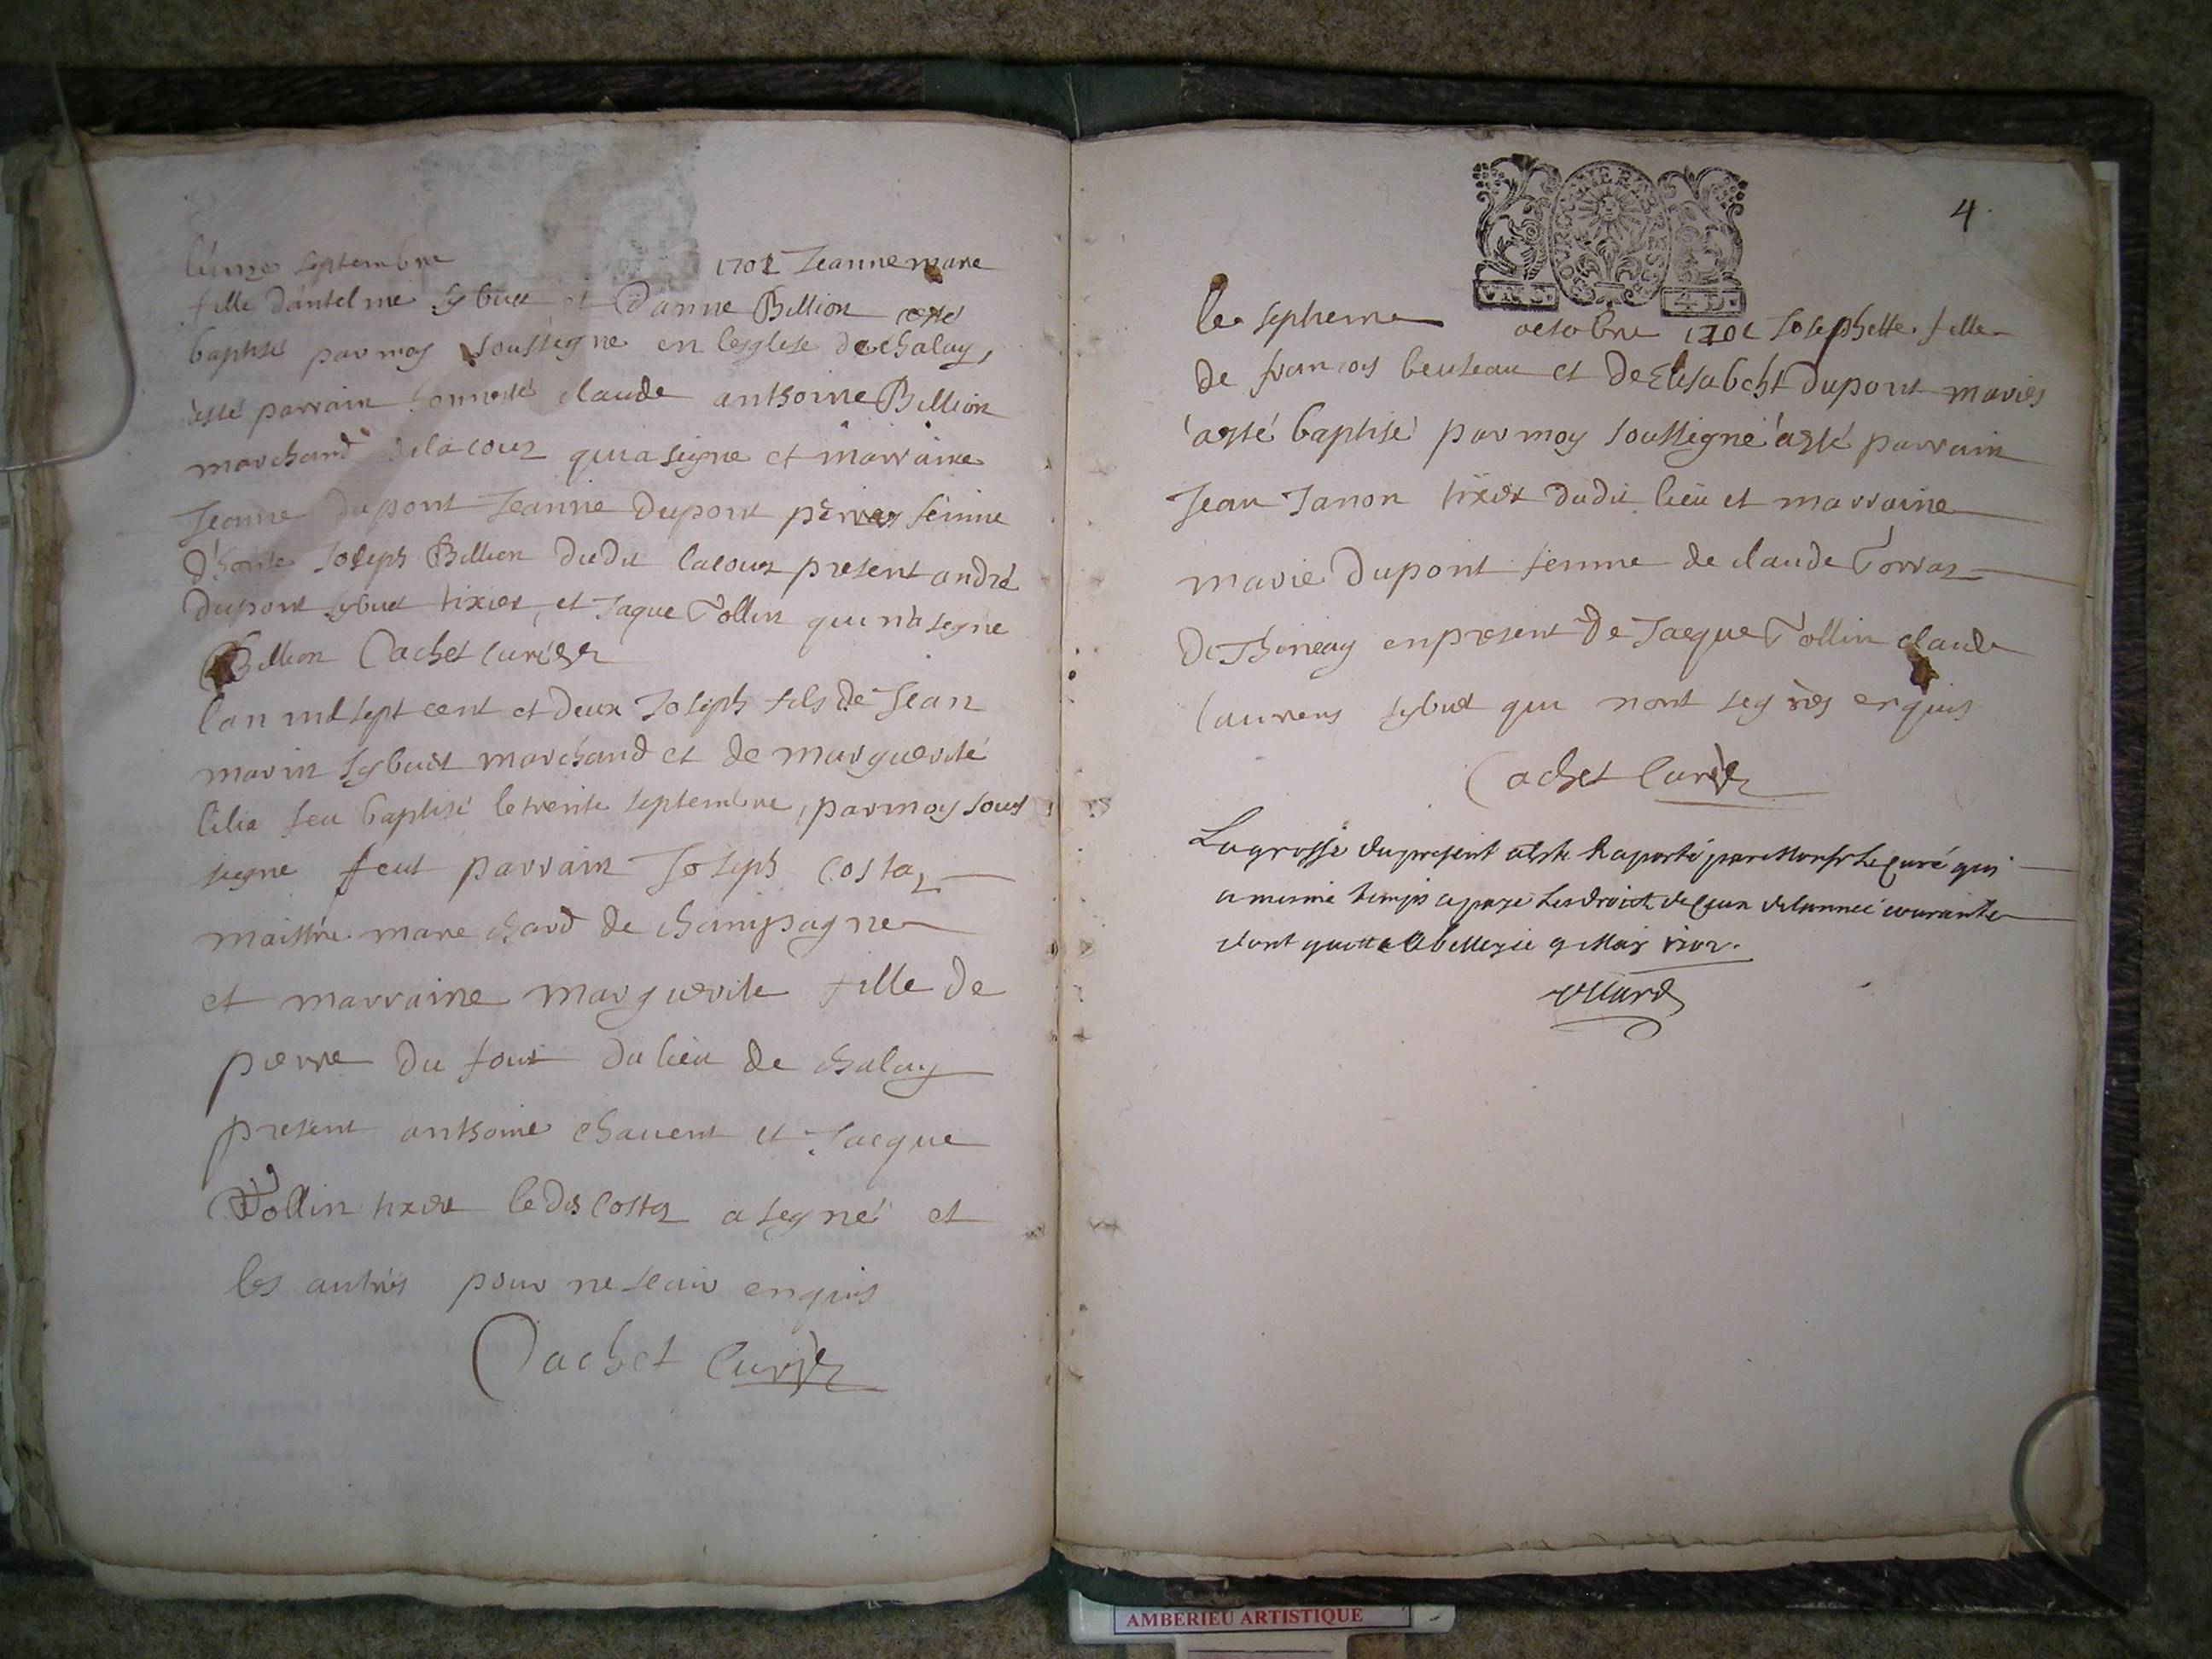 septembre 1702 Jeanne marie
fille dantelme sybuet et Danne Billion esté
baptisé par moy soussigne en lesglise de chaley,
esté parrain honneste claude anthoine Billion
marchand de lacour qui a signe et marraine
Jeanne dupont Jeanne Dupont femme
Joseph Billion dudit lacour present andré
dupont sybuet tixier, et Jaque Tollin qui signe
Billion Cachet curé
lan mil sept cent et deux Joseph fils de Jean
marin sybuet marchand et de marguerite
feu baptisé le trente septembre, par moy sous
signe feut parrain Joseph Costaz
maistre mare chard de champagne
et marraine marguerite fille de
pierre du four du lieu de chaley
present anthoine chavent et Jacque
Tollin tixier ledit Costaz a segné et
les autres pour ne scavir enquis
Cachet Curé
4
GE
VN S.
4 D.
le septieme octobre 1702 Josephette fille
de francois beuteau et de Elisabeht dupont mariés
a esté baptisé par moy soussigne a esté parrain
Jean Janon tixier dudit lieu et marraine
marie Dupont femme de claude Torraz
De Thenay en present de Jacque Tollin claude
laurens sybuet qui nont enquis
Cachet Curé
La grosse du present esté Raporté par Monsr Le Curé qui
a mesme temps a payé Les droits de Ceux de lannee courante
dont quitte A belley ce 9 May 1702.
AMBERIEU ARTISTIQUE